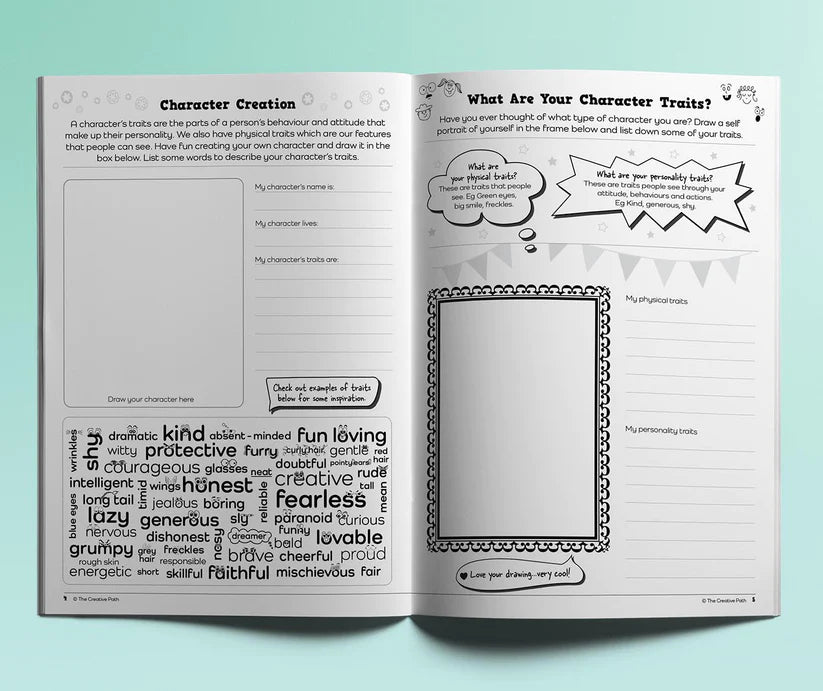 Character Creation
A character's traits are the parts of a person's behaviour and attitude that
make up their personality. We also have physical traits which are our features
that people can see. Have fun creating your own character and draw it in the
box below. List some words to describe your character's traits.
My character's name is:
My character lives:
My character's traits are:
Draw your character here
Check out examples of traits
below for some inspiration.
wrinkles
shy
dramatic
kind
absent-minded
fun loving
witty
protective
furry
curly hair
gentle
red
hair
courageous
glasses
neat
doubtful
pointy ears
rude
intelligent
wings
honest
creative
tall
mean
blue eyes
long tail
timid
jealous
boring
reliable
fearless
lazy
generous
sly
paranoid
curious
nervous
dishonest
nosy
dreamer
funny
bald
lovable
grumpy
grey
hair
freckles
brave
cheerful
proud
rough skin
responsible
energetic
short
skillful
faithful
mischievous
fair
4 © The Creative Path
What Are Your Character Traits?
Have you ever thought of what type of character you are? Draw a self
portrait of yourself in the frame below and list down some of your traits.
What are
your physical traits?
These are traits that people
see. Eg Green eyes,
big smile, freckles.
What are your personality traits?
These are traits people see through your
attitude, behaviours and actions.
Eg Kind, generous, shy.
My physical traits
My personality traits
Love your drawing...very cool!
© The Creative Path 5